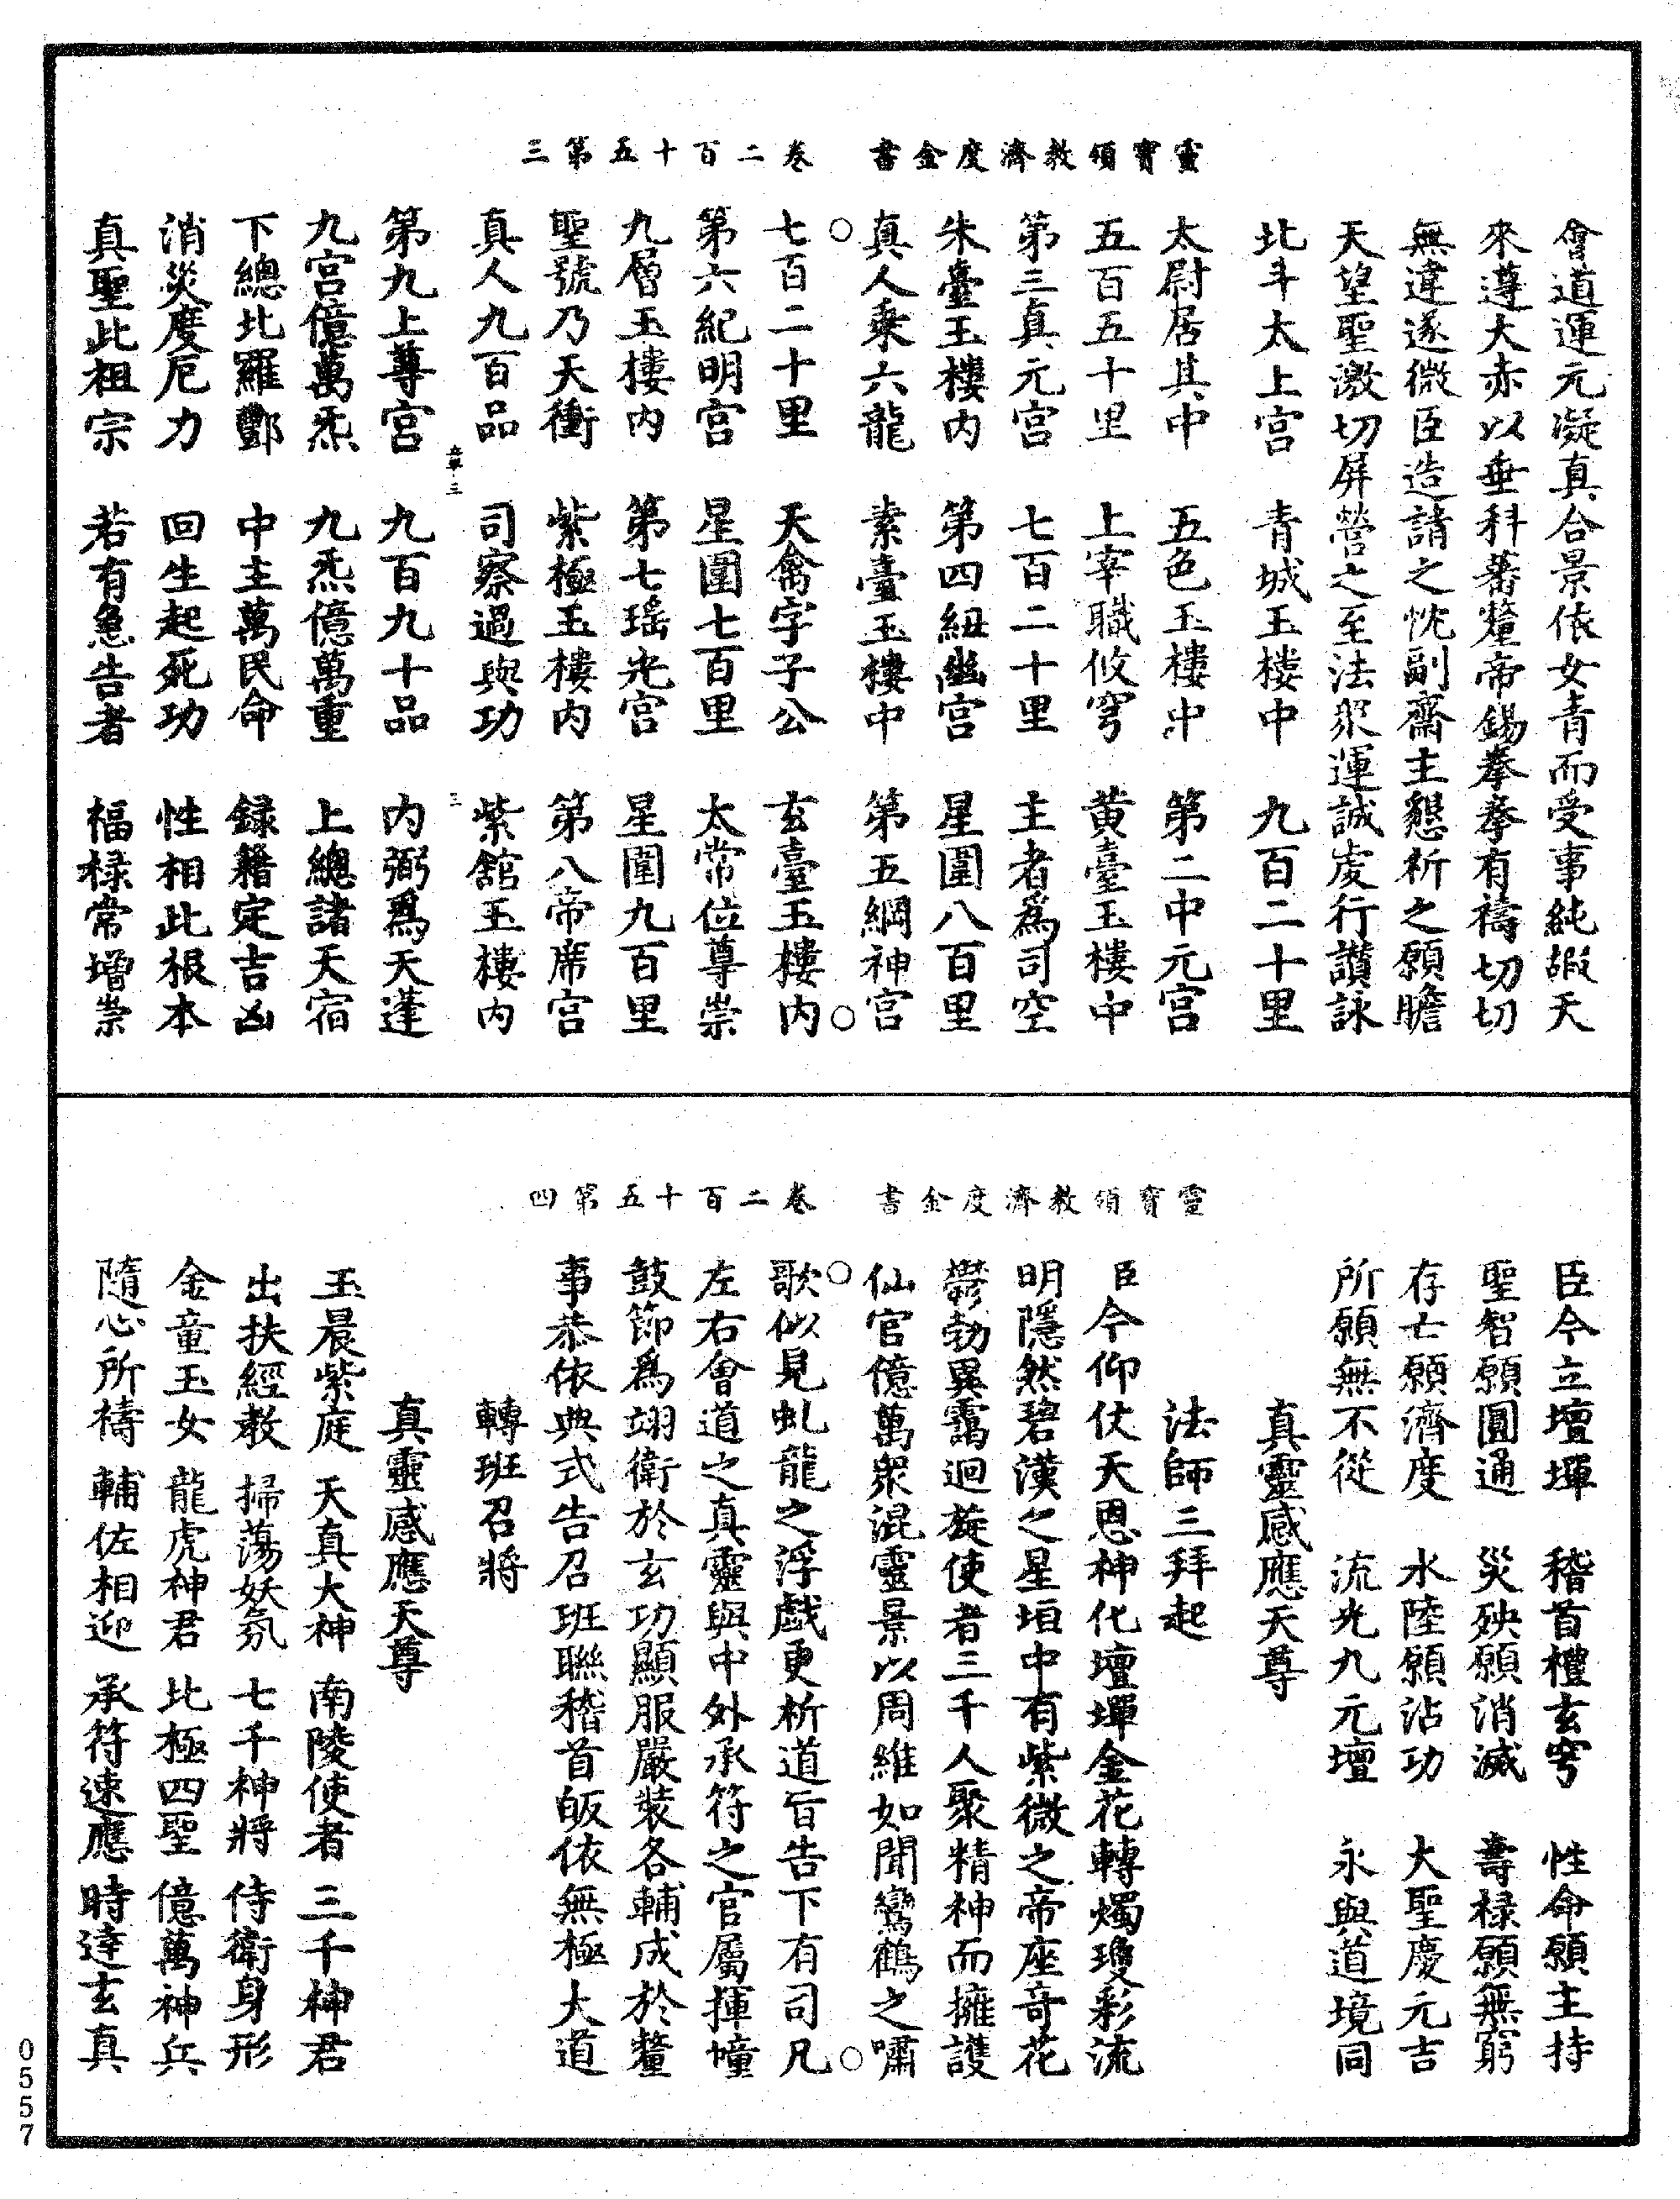 靈寶領教濟度金書　卷二百十五第三
會道運元凝真合景依女青而受事純嘏天
來遵大赤以垂科蕃釐帝錫拳拳有禱切切
無違遂微臣造請之忱副齋主懇祈之願瞻
天望聖激切屏營之至法眾運誠虔行讚詠
北斗太上宮　青城玉樓中　九百二十里
太尉居其中　五色玉樓中　第二中元宮
五百五十里　上宰職攸穹　黃臺玉樓中
第三真元宮　七百二十里　主者為司空
朱臺玉樓內　第四紐幽宮　星圍八百里
真人乘六龍　素臺玉樓中　第五綱神宮
七百二十里　天禽字子公　玄臺玉樓內
第六紀明宮　星圍七百里　太常位尊崇
九層玉樓內　第七瑤光宮　星圍九百里
聖號乃天衝　紫極玉樓內　第八帝席宮
真人九百品　司察過與功　紫館玉樓內
三
第九上尊宮　九百九十品　內弼為天蓬
九宮億萬炁　九炁億萬重　上總諸天宿
下總北羅酆　中主萬民命　錄籍定吉凶
消災度厄力　回生起死功　性相此根本
真聖此祖宗　若有急告者　福祿常增崇
靈寶領教濟度金書　卷二百十五第四
臣今立壇墠　稽首禮玄穹　性命願主持
聖智願圓通　災殃願消滅　壽祿願無窮
存亡願濟度　水陸願沾功　大聖慶元吉
所願無不從　流光九元壇　永與道境同
真靈感應天尊
法師三拜起
臣今仰仗天恩神化壇墠金花轉燭瓊彩流
明隱然碧漢之星垣中有紫微之帝座奇花
鬱勃異靄迴旋使者三千人聚精神而擁護
仙官億萬眾混靈景以周維如聞鸞鶴之嘯
歌似見虬龍之浮戲更析道旨告下有司凡
左右會道之真靈與中外承符之官屬揮幢
鼓節為翊衛於玄功顯服嚴裝各輔成於釐
事恭依典式告召班聯稽首皈依無極大道
轉班召將
真靈感應天尊
玉晨紫庭　天真大神　南陵使者　三千神君
出扶經教　掃蕩妖氛　七千神將　侍衛身形
金童玉女　龍虎神君　北極四聖　億萬神兵
隨心所禱　輔佐相迎　承符速應　時達玄真
0557